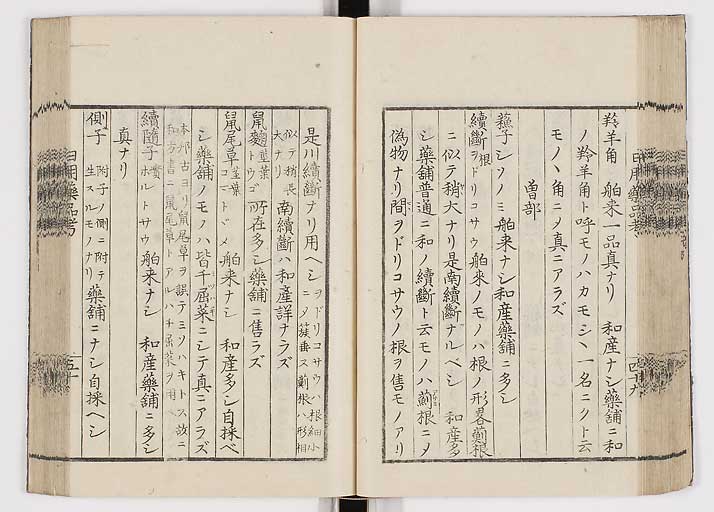 羚羊角 舶来一品真ナリ 和産ナシ藥舖ニ和
ノ羚羊角ト呼モノハカモシヽ一名ニクト云
モノヽ角ニメ真ニアラズ
曽部
蘓子シソノミ舶来ナシ和産藥舖ニ多シ
續斷根ヲドリコサウ舶来ノモノハ根ノ形畧薊根
ニ似テ稍大ナリ是南續斷ナルベシ 和産多
シ藥舖普通ニ和ノ續斷ト云モノハ薊根ニメ
偽物ナリ間ヲドリコサウノ根ヲ售モノアリ
是川續斷ナリ用ヘシヲドリコサウハ根細小
ニメ簇垂ス薊根ハ形相
似テ稍長
大ナリ南續斷ハ和産詳ナラズ
鼠麴莖葉
トウゴ所在多シ藥舖ニ售ラズ
鼠尾草莖葉
ミゾハギ舶来ナシ 和産多シ自採ベ
シ藥舖ノモノハ皆千屈菜ニシテ真ニアラズ
本邦古ヨリ鼠尾草ヲ誤テミソハキトス故ニ
和方書ニ鼠尾草トアルハ千屈菜ヲ用ヘシ
續隨子實
ホルトサウ舶来ナシ 和産藥舖ニ多シ
真ナリ
側子附子ノ側ニ附テ
生スルモノナリ藥舖ニナシ自採ヘシ
日用藥品考
四十九
日用藥品考
五十